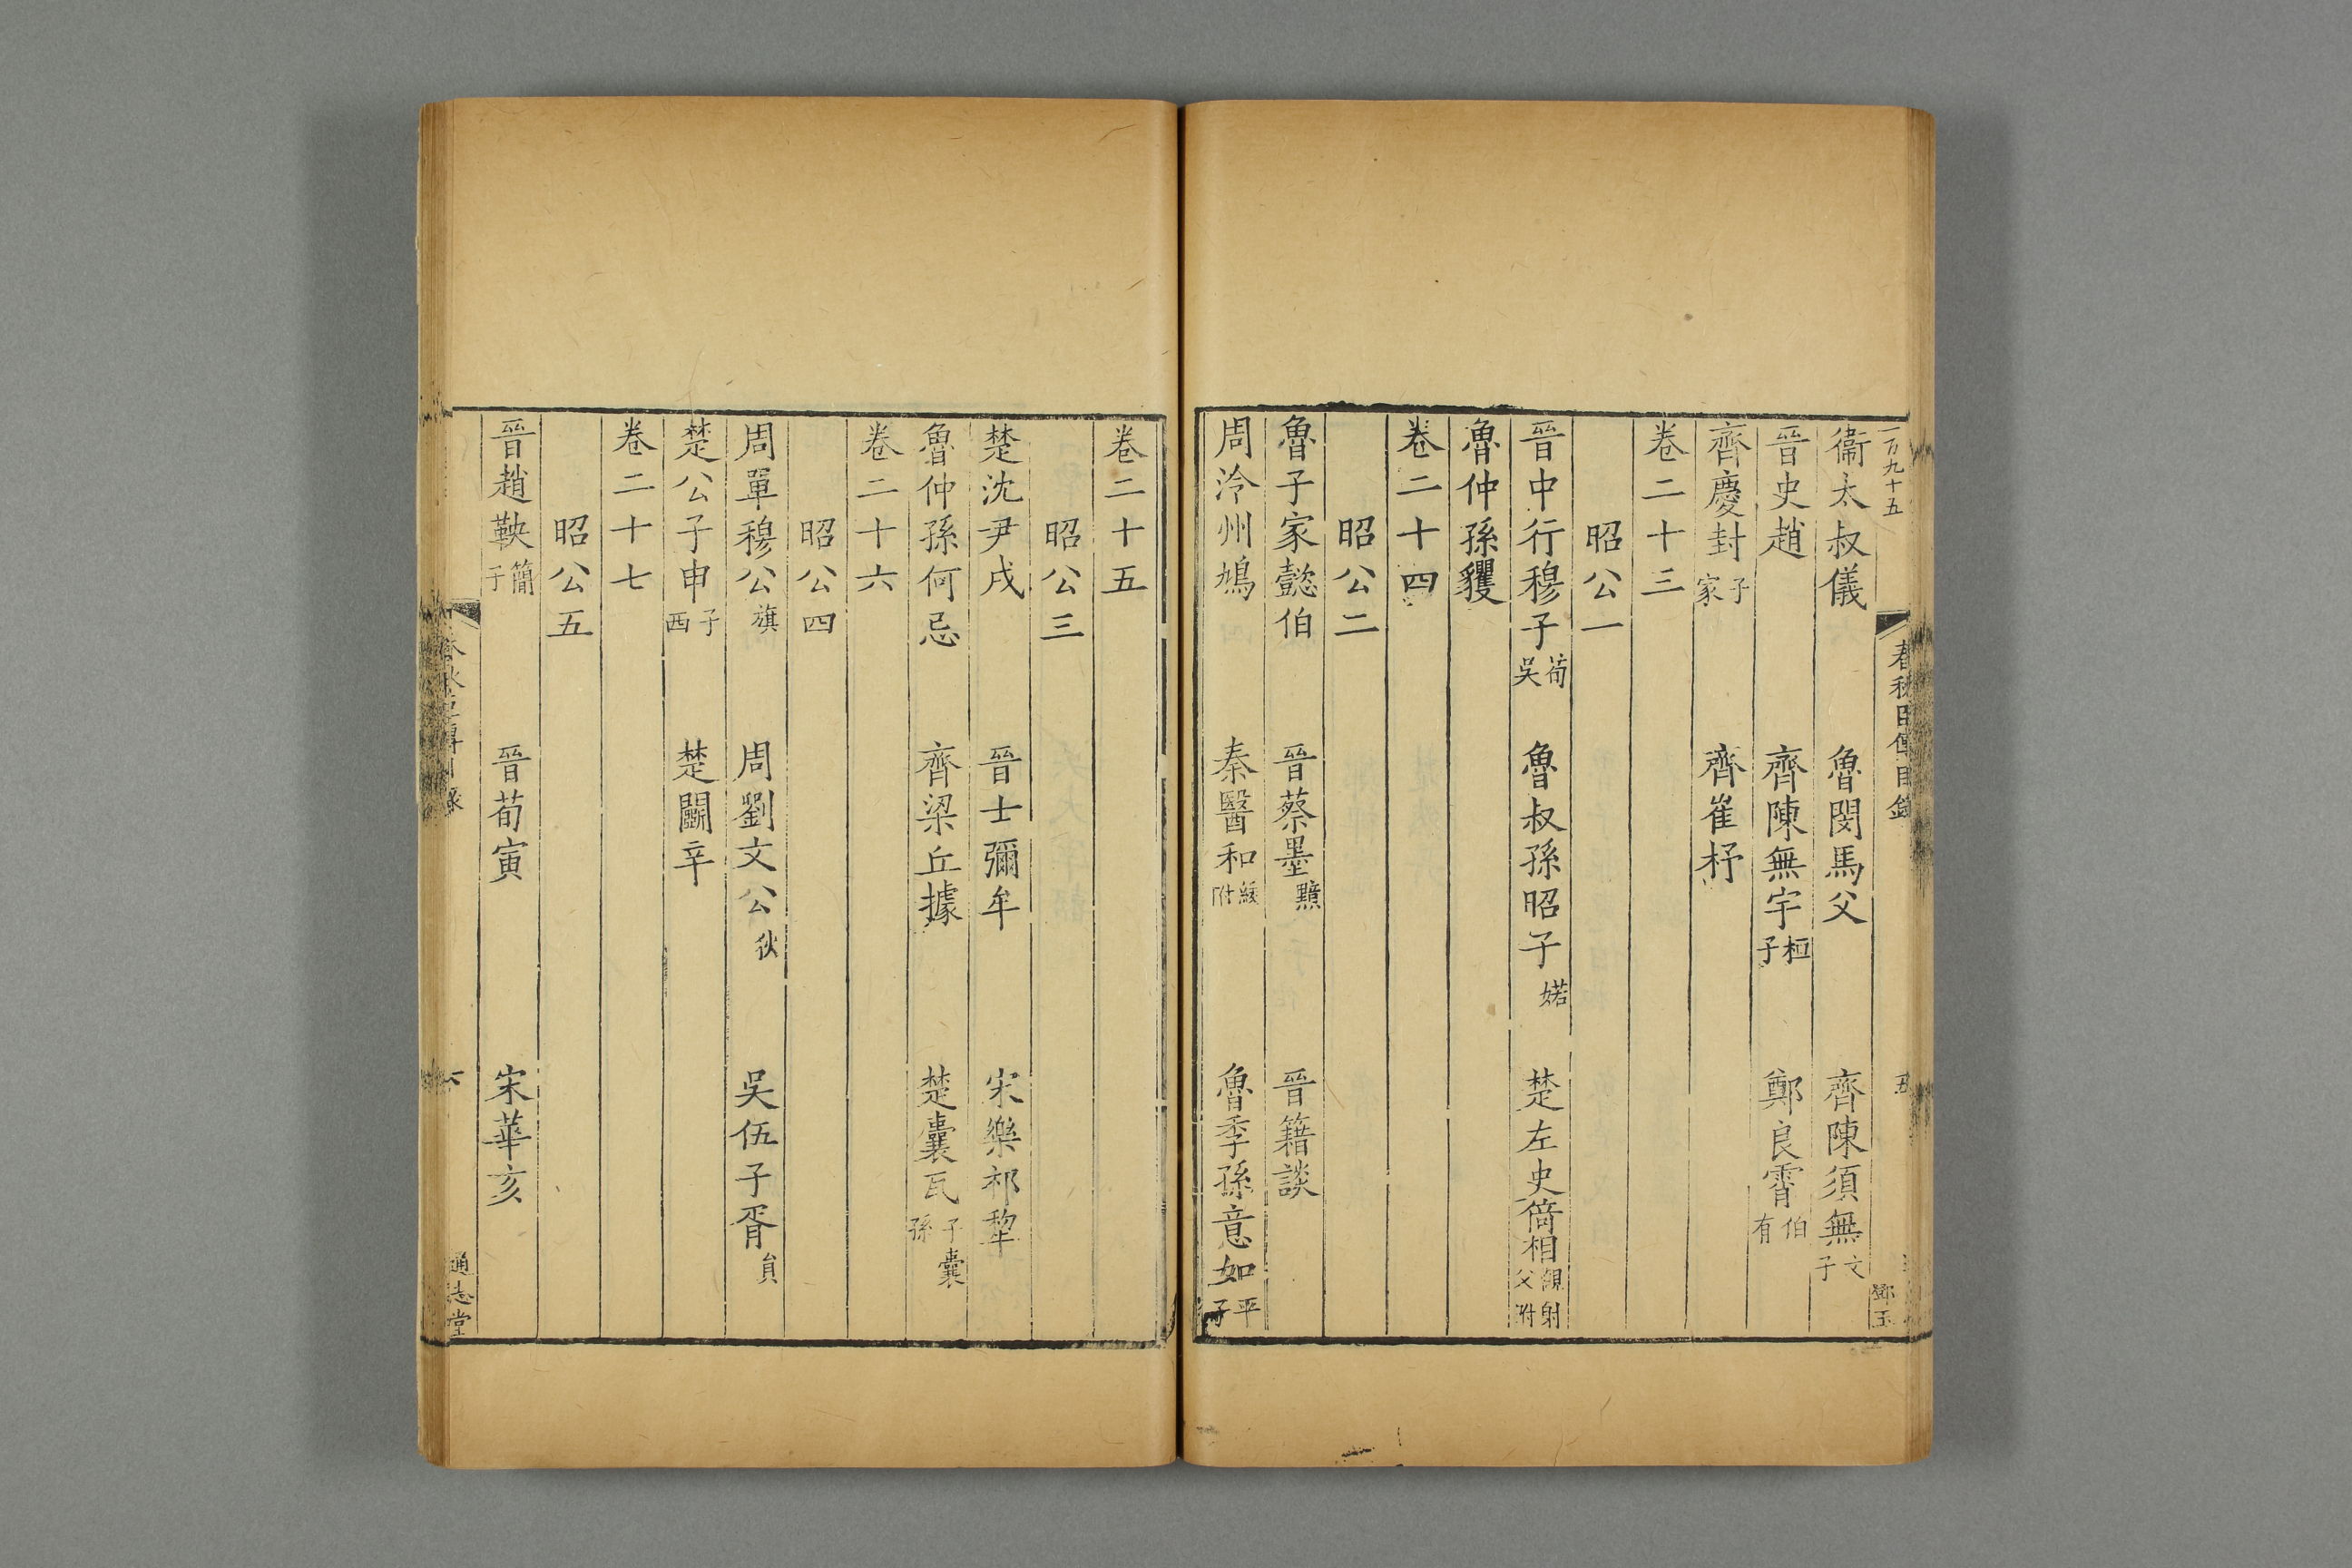 一百九十五
春秋臣傳目錄
五
鄧玉
衞太叔儀 魯閔馬父 齊陳須無文子
晉史趙 齊陳無宇桓子 鄭良霄伯有
齊慶封子家 齊崔杼
卷二十三
昭公一
晉中行穆子荀吳 魯叔孫昭子婼 楚左史倚相觀射父附
魯仲孫貜
卷二十四
昭公二
魯子家懿伯 晉蔡墨黯 晉籍談
周泠州鳩 秦醫和緩附 魯季孫意如平子
卷二十五
昭公三
楚沈尹戌 晉士彌牟 宋樂祁犂
魯仲孫何忌 齊梁丘據 楚囊瓦子囊孫
卷二十六
昭公四
周單穆公旗 周劉文公狄 吳伍子胥員
楚公子申子西 楚鬬辛
卷二十七
昭公五
晉趙鞅簡子 晉荀寅 宋華亥
六
通志堂